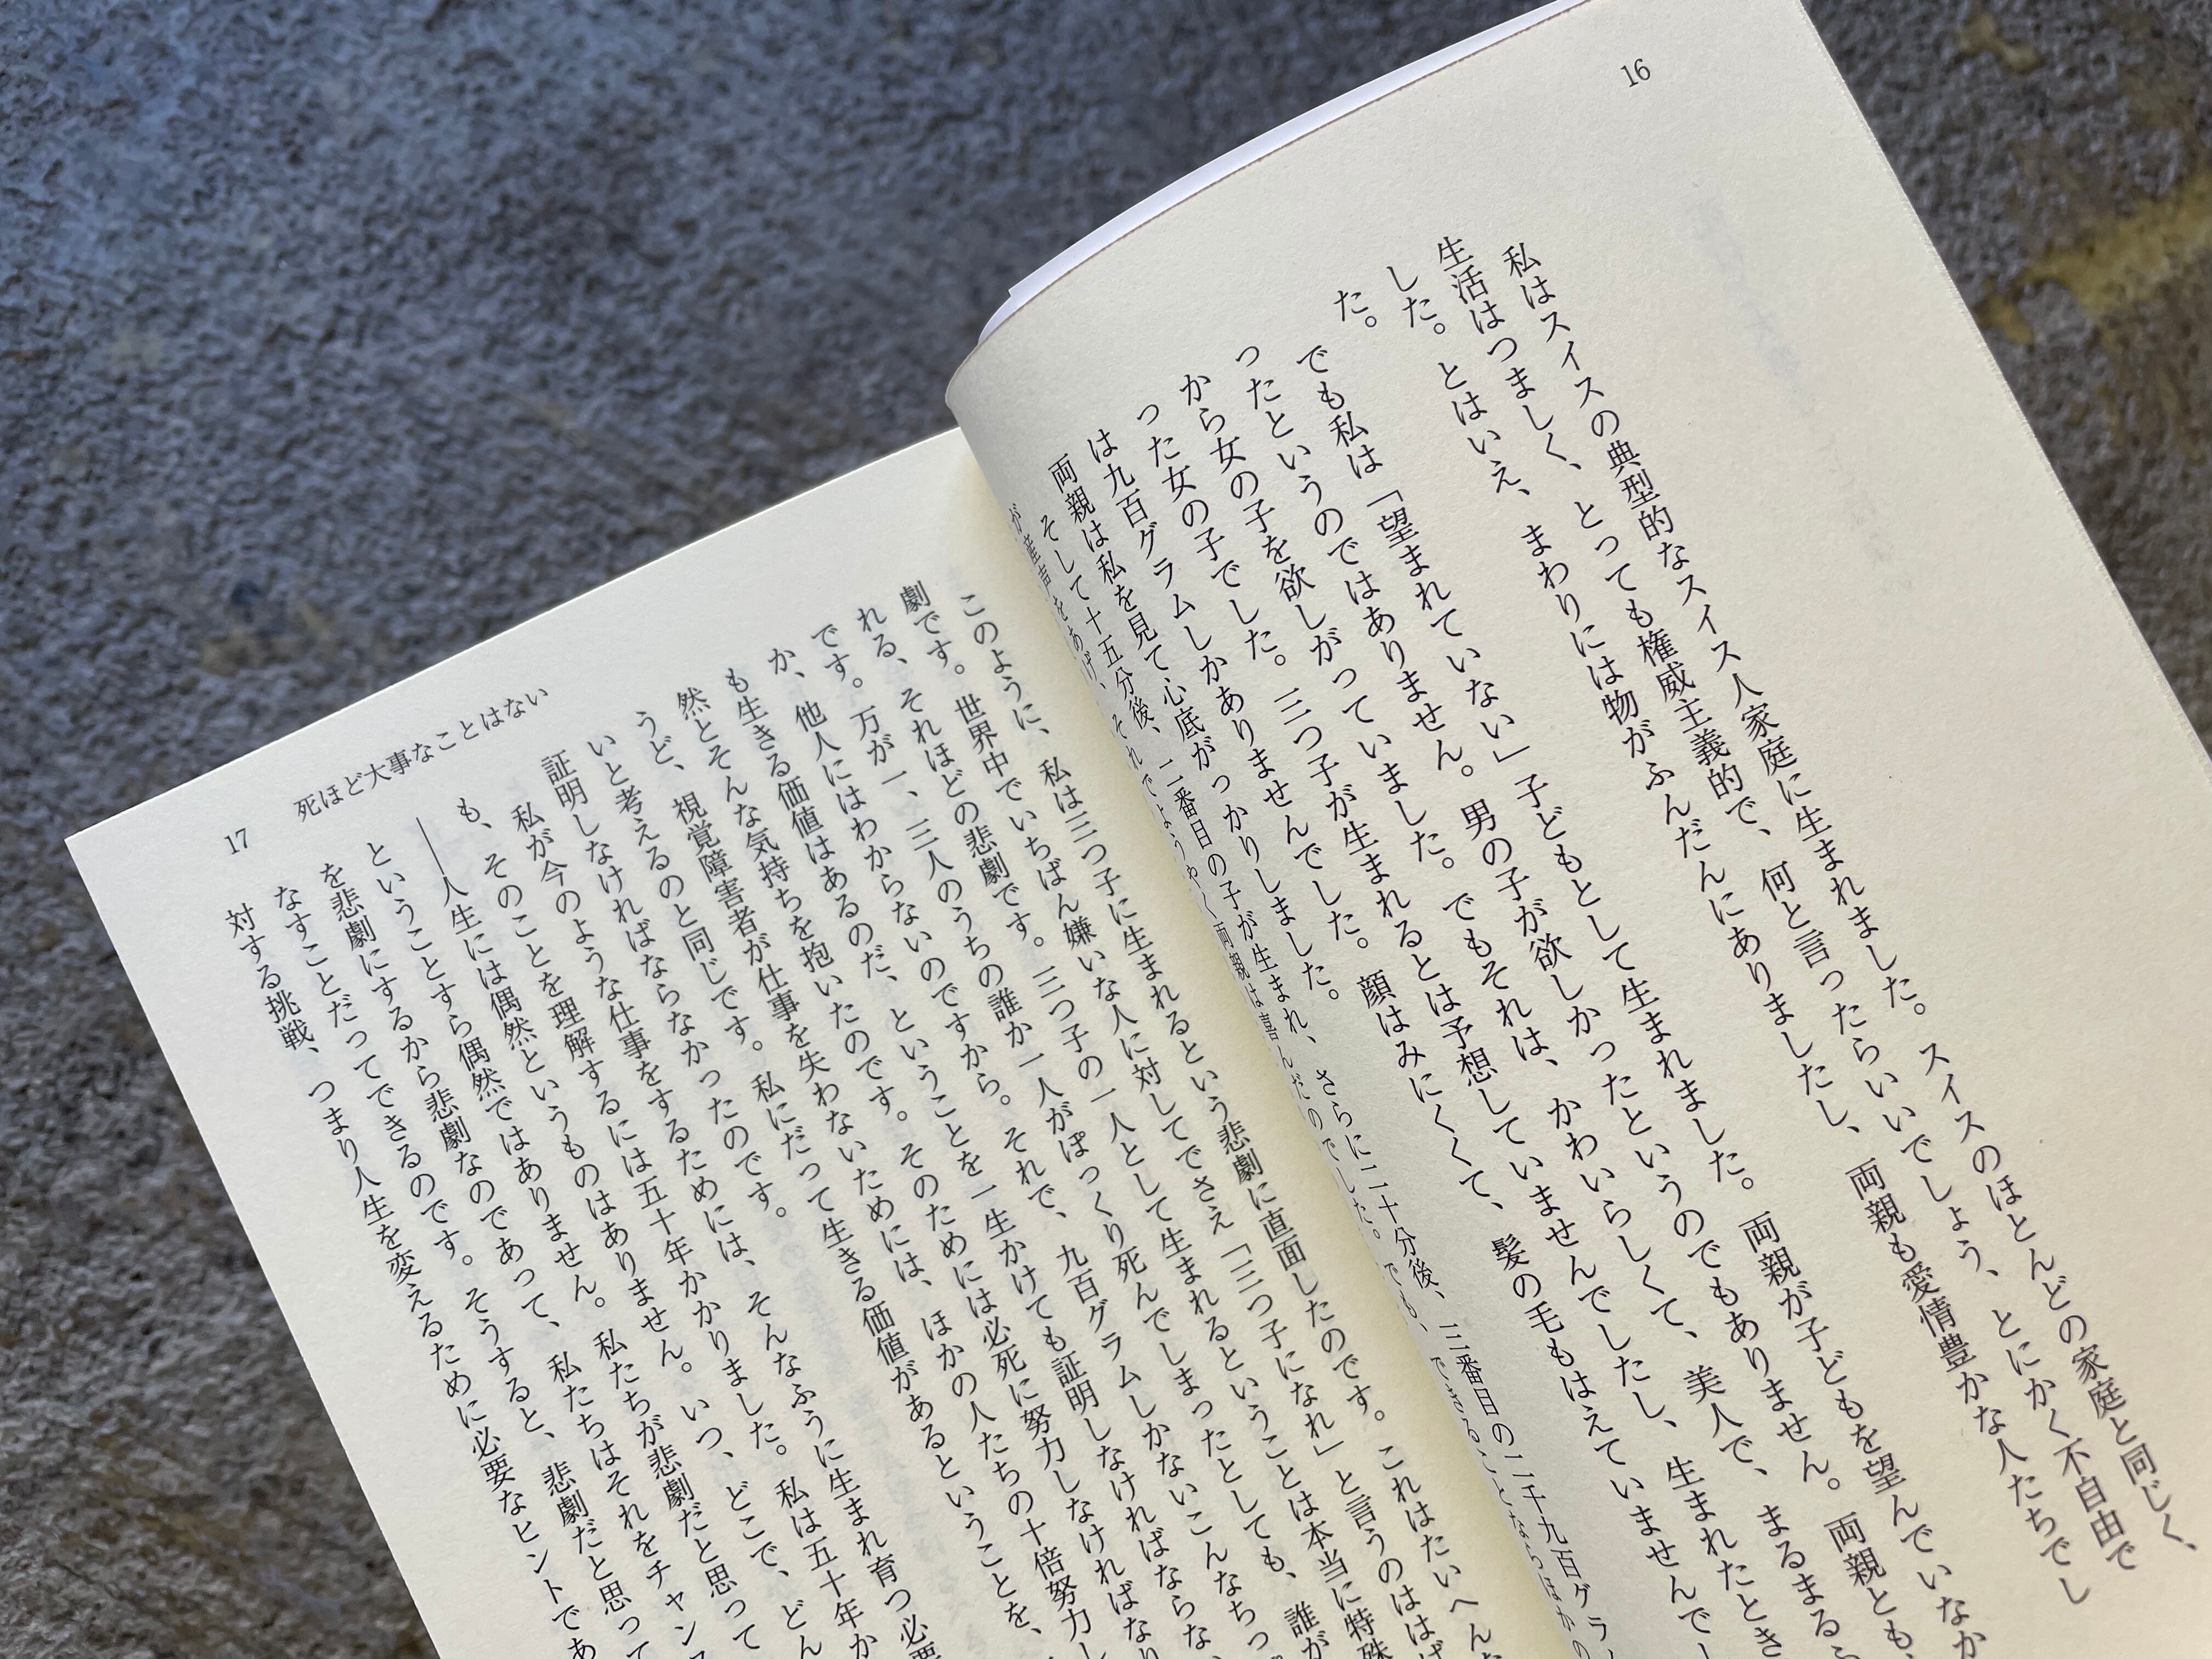 16
私はスイスの典型的なスイス人家庭に生まれました。スイスのほとんどの家庭と同じく、
生活はつましく、とっても権威主義的で、何と言ったらいいでしょう、とにかく不自由で
した。とはいえ、まわりには物がふんだんにありましたし、両親も愛情豊かな人たちでし
た。
でも私は「望まれていない」子どもとして生まれました。両親が子どもを望んでいなか
ったというのではありません。男の子が欲しかったというのでもありません。両親とも、
から女の子を欲しがっていました。でもそれは、かわいらしくて、美人で、まるまる
った女の子でした。三つ子が生まれるとは予想していませんでしたし、生まれたとき
は九百グラムしかありませんでした。顔はみにくくて、髪の毛もはえていませんで
両親は私を見て心底がっかりしました。
そして十五分後、二番目の子が生まれ、さらに二十分後、三番目の二千九百グラ
が産声をあげ、それでようやく両親は喜んだのでした。でも、できることならほかの
このように、私は三つ子に生まれるという悲劇に直面したのです。これはたいへん
劇です。世界中でいちばん嫌いな人に対してでさえ「三つ子になれ」と言うのははば
れる、それほどの悲劇です。三つ子の一人として生まれるということは本当に特殊
です。万が一、三人のうちの誰か一人がぽっくり死んでしまったとしても、誰が
か、他人にはわからないのですから。それで、九百グラムしかないこんなちっ
も生きる価値はあるのだ、ということを一生かけても証明しなければならな
然とそんな気持ちを抱いたのです。そのためには必死に努力しなければなり
うど、視覚障害者が仕事を失わないためには、ほかの人たちの十倍努力し
いと考えるのと同じです。私にだって生きる価値があるということを、
証明しなければならなかったのです。
私が今のような仕事をするためには、そんなふうに生まれ育つ必要
も、そのことを理解するには五十年かかりました。私は五十年か
――人生には偶然というものはありません。いつ、どこで、どん
ということすら偶然ではありません。私たちが悲劇だと思って
を悲劇にするから悲劇なのであって、私たちはそれをチャンス
なすことだってできるのです。そうすると、悲劇だと思って
対する挑戦、つまり人生を変えるために必要なヒントであ
17
死ほど大事なことはない